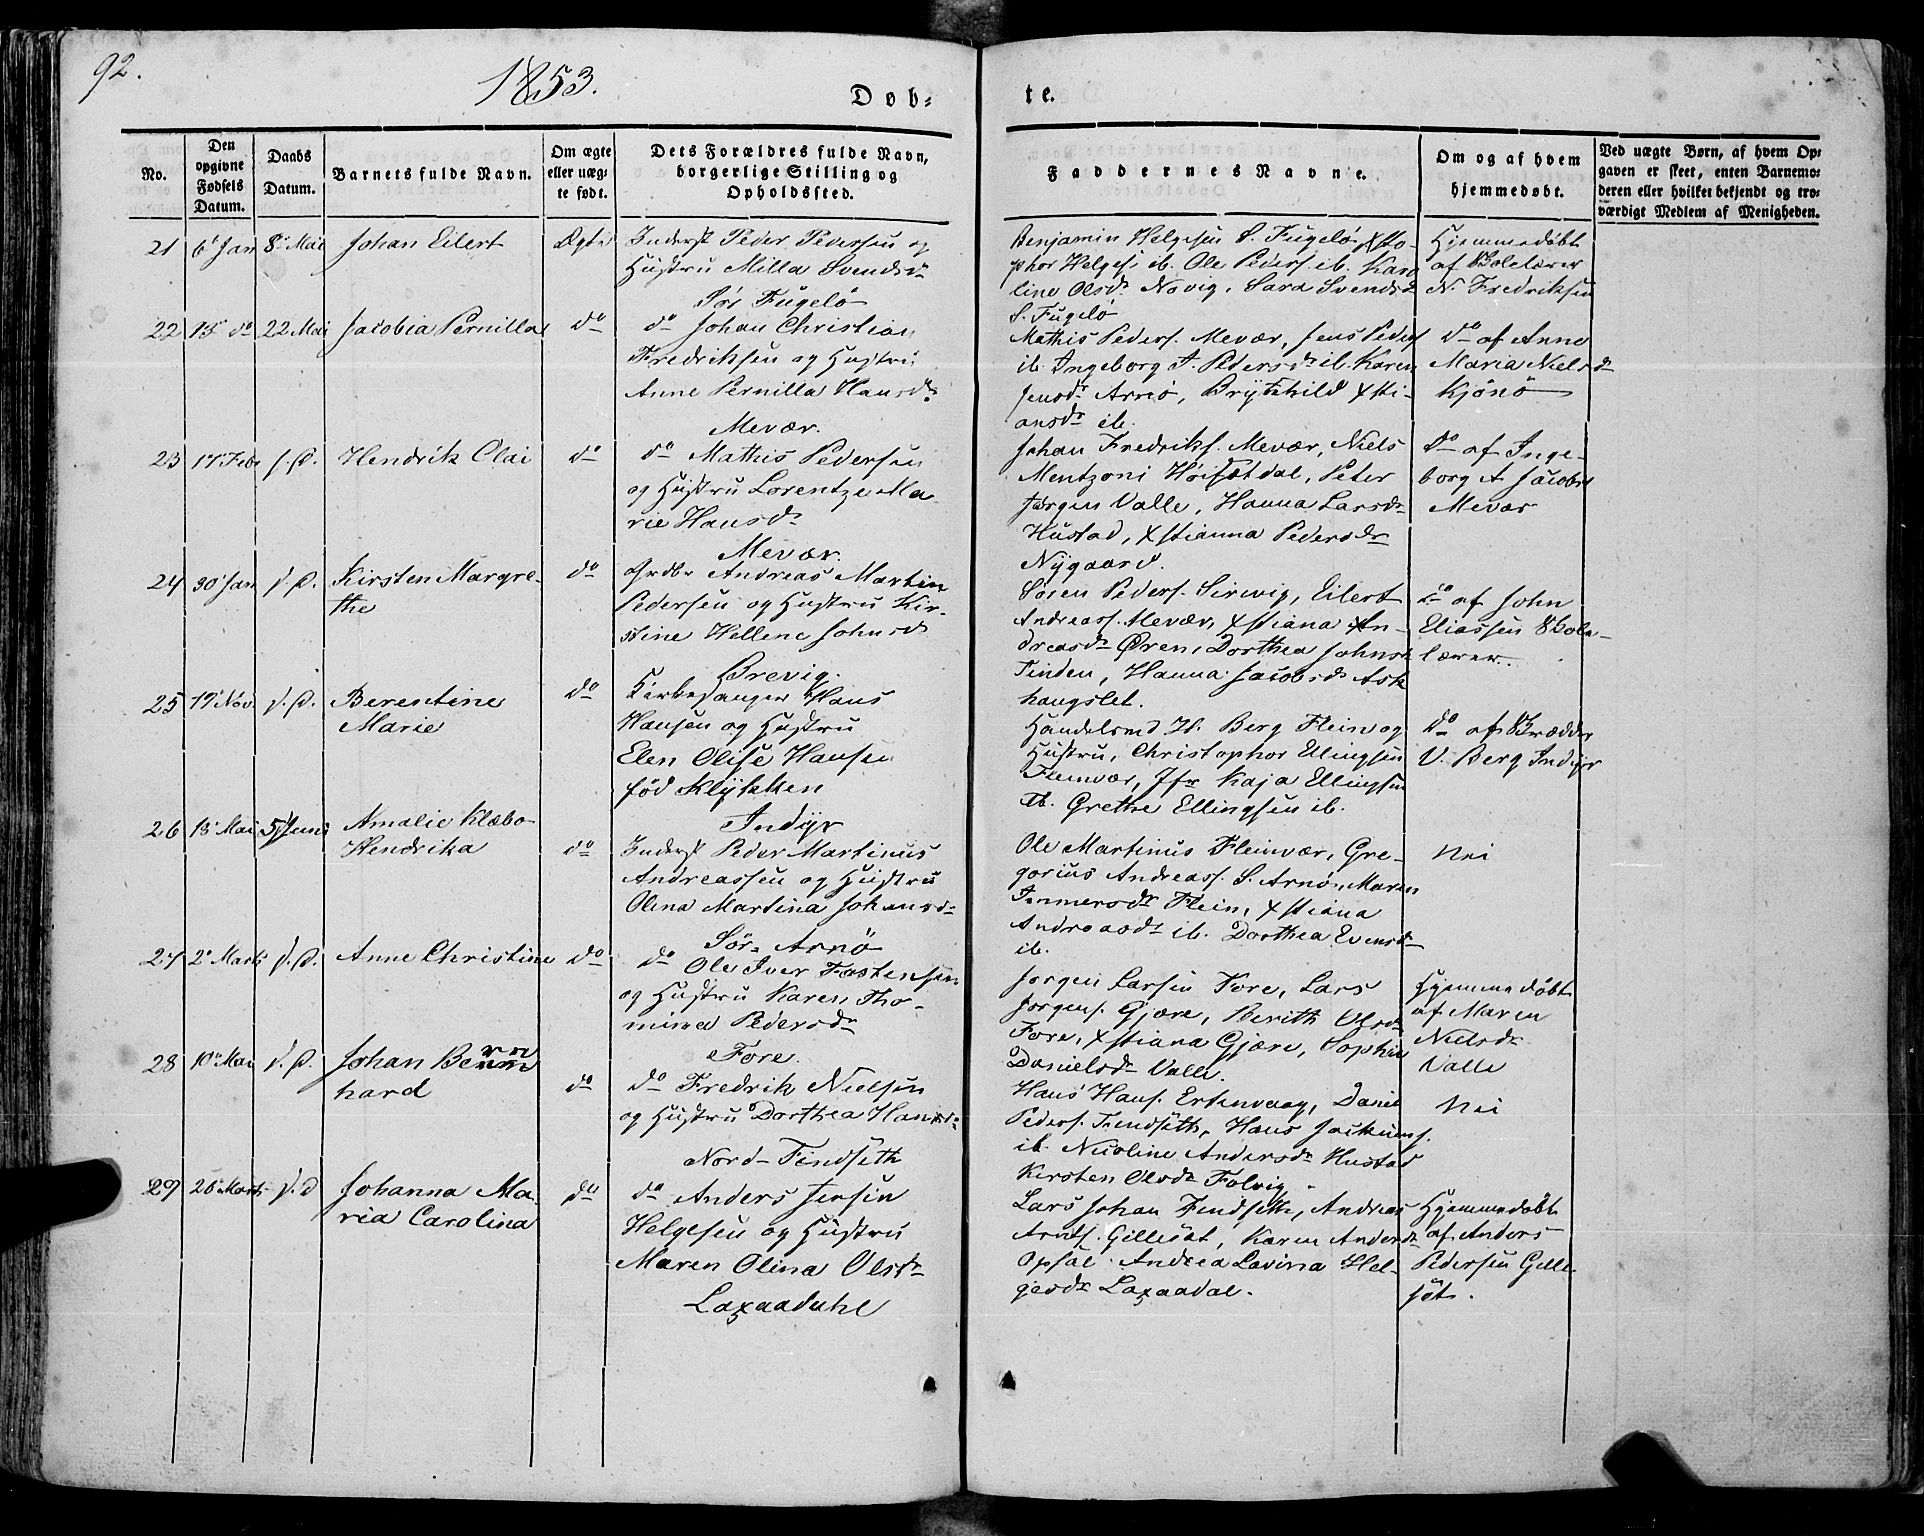 92.
1853.
Døb-
te.
No.
Den opgivne Fødsels Datum.
Daabs Datum.
Barnets fulde Navn.
Om ægte eller uæg-
te født.
Dets Forældres fulde Navn,
borgerlige Stilling og
Opholdssted.
Faddernes Navne.
Om og af hvem
hjemmedøbt.
Ved uægte Børn, af hvem Op-
gaven er skeet, enten Barnemo-
deren eller hvilket bekjendt og tro-
værdigt Medlem af Menigheden.
21 6' Jan 8' Mai Johan Eilert Ægte
Inderst Peder Pedersen og
Hustru Milla Svendsdr
Sør Fugelö
Benjamin Helgesen S. Fugelö, Xsto-
phor Helges. ib. Ole Peders. ib. Karo
line Olsdr Novig, Sara Svendsd
S. Fugelö
Hjemmedöbt
af Skolelærer
N. Fredriksen
22 15 do 22 Mai Jacobia Pernilla do
do Johan Christian
Fredriksen og Hustru
Anne Pernilla Hansdr
Mevær.
Mathis Peders. Mevær, Jens Peders
ib. Ingeborg J. Pedersdr ib. Karen
Jensdr Arnö, Brÿtehild Xsti-
ansdr ib.
do af Anne
Maria Nielsd
Kjönö
23 17 Feb s. D. Hendrik Olai do
do Mathis Pedersen
og Hustru Lorentze Ma
rie Hansdr
Mevær.
Johan Fredriks. Mevær, Niels
Mentzoni Höisetdal, Peter
Jörgen Valle, Hanna Larsdr
Hustad, Xstianna Pedersdr
Nygaard.
do af Inge-
borg A Jacobsd
Mevær
24 30 Jan s. D. Kirsten Margre-
the do
Grdbr Andreas Martin
Pedersen og Hustru Kir-
stine Hellene Johnsd
Brevig.
Sören Peders. Sirevig, Eilert
Andreass. Mevær, Xstiana An-
dreasdr Ören, Dorthea Johnsd
Tinden, Hanna Jacobsdr Ask
haugslet.
do af John
Eliassen Skole-
lærer.
25 17 Nov. s. D. Berentine
Marie do
Kirkesanger Hans
Hansen og Hustru
Elen Olise Hansen
föd Klÿkken
Indÿr
Handelsmd H. Berg Flein og
Hustru, Christopher Ellingsen
Fleinvær, Jfr Kaja Ellingsen
ib. Grethe Ellingsen ib.
do af Skrædder
V. Berg Indÿr
26 13 Mai 5 Juni Amalie Klæbo
Hendrika do
Inderst Peder Martinus
Andreassen og Hustru
Olena Martina Johansd
Sör- Arnö
Ole Martinus Fleinvær, Gre-
gorius Andreass. S. Arnö, Maren
Immersdr Flein, Xstiana
Andreasdr ib. Dorthea Evensdr
ib.
Nei
27 2' Marts s. D. Anne Christine do
do Ole Iver Tostensen
og Hustru Karen Tho-
mina Pedersdr
Fore.
Jörgen Larsen Fore, Lars
Jörgens. Gjære, Berith Olsdr
Fore, Xstiana Gjære, Sophie
Danielsdr Valle.
Hjemmedöbt
af Maren
Nielsdr
Valle
28 10' Mai s. D. Johan Bern
hard do
do Fredrik Nielsen
og Hustru Dorthea Hansdr
Nord- Findseth
Hans Hans. Ertenvaag, Daniel
Peders. Findseth, Hans Joakims.
ib. Nicoline Andersdr Hustad
Kirsten Olsdr Folvig.
Nei
29 26 Marts s. D Johanna Ma-
ria Carolina do
do Anders Jensen
Helgesen og Hustru
Maren Olina Olsdr
Laxaadahl
Lars Johan Findseth, Andreas
Arnts. Gillesöt, Karen Andersdr
Opsal. Andrea Lavina Hel-
gesdr Laxaadal.
Hjemmedöbt
af Anders
Pedersen Gille
söt.